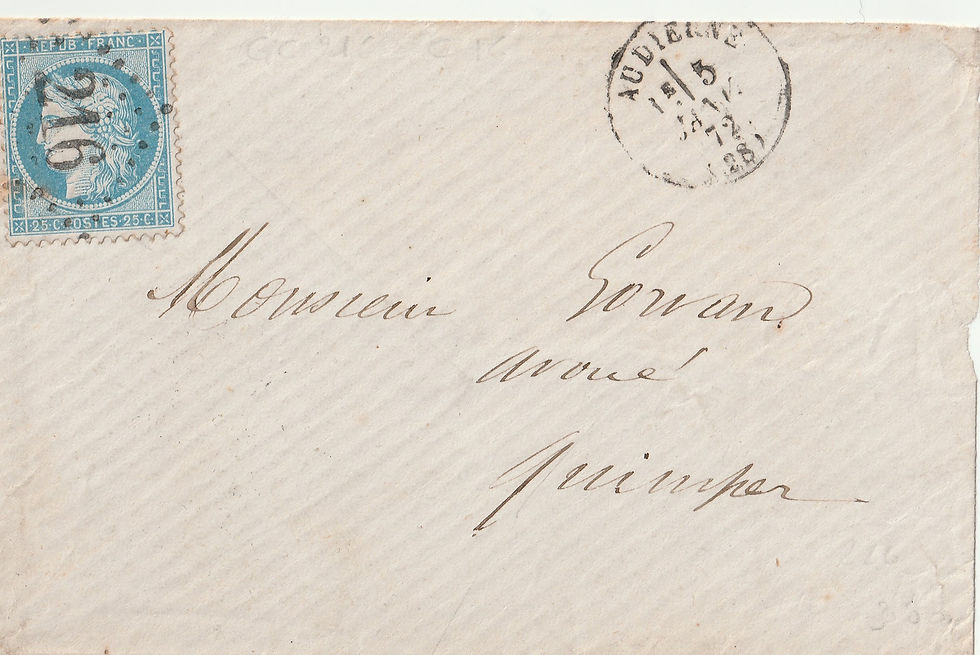 REPUB·FRANC·
216
25·C·POSTES·25·C
AUDIERNE
1E 5
JANV.
72
(28)
Monsieur Gorvan
avoué
Quimper